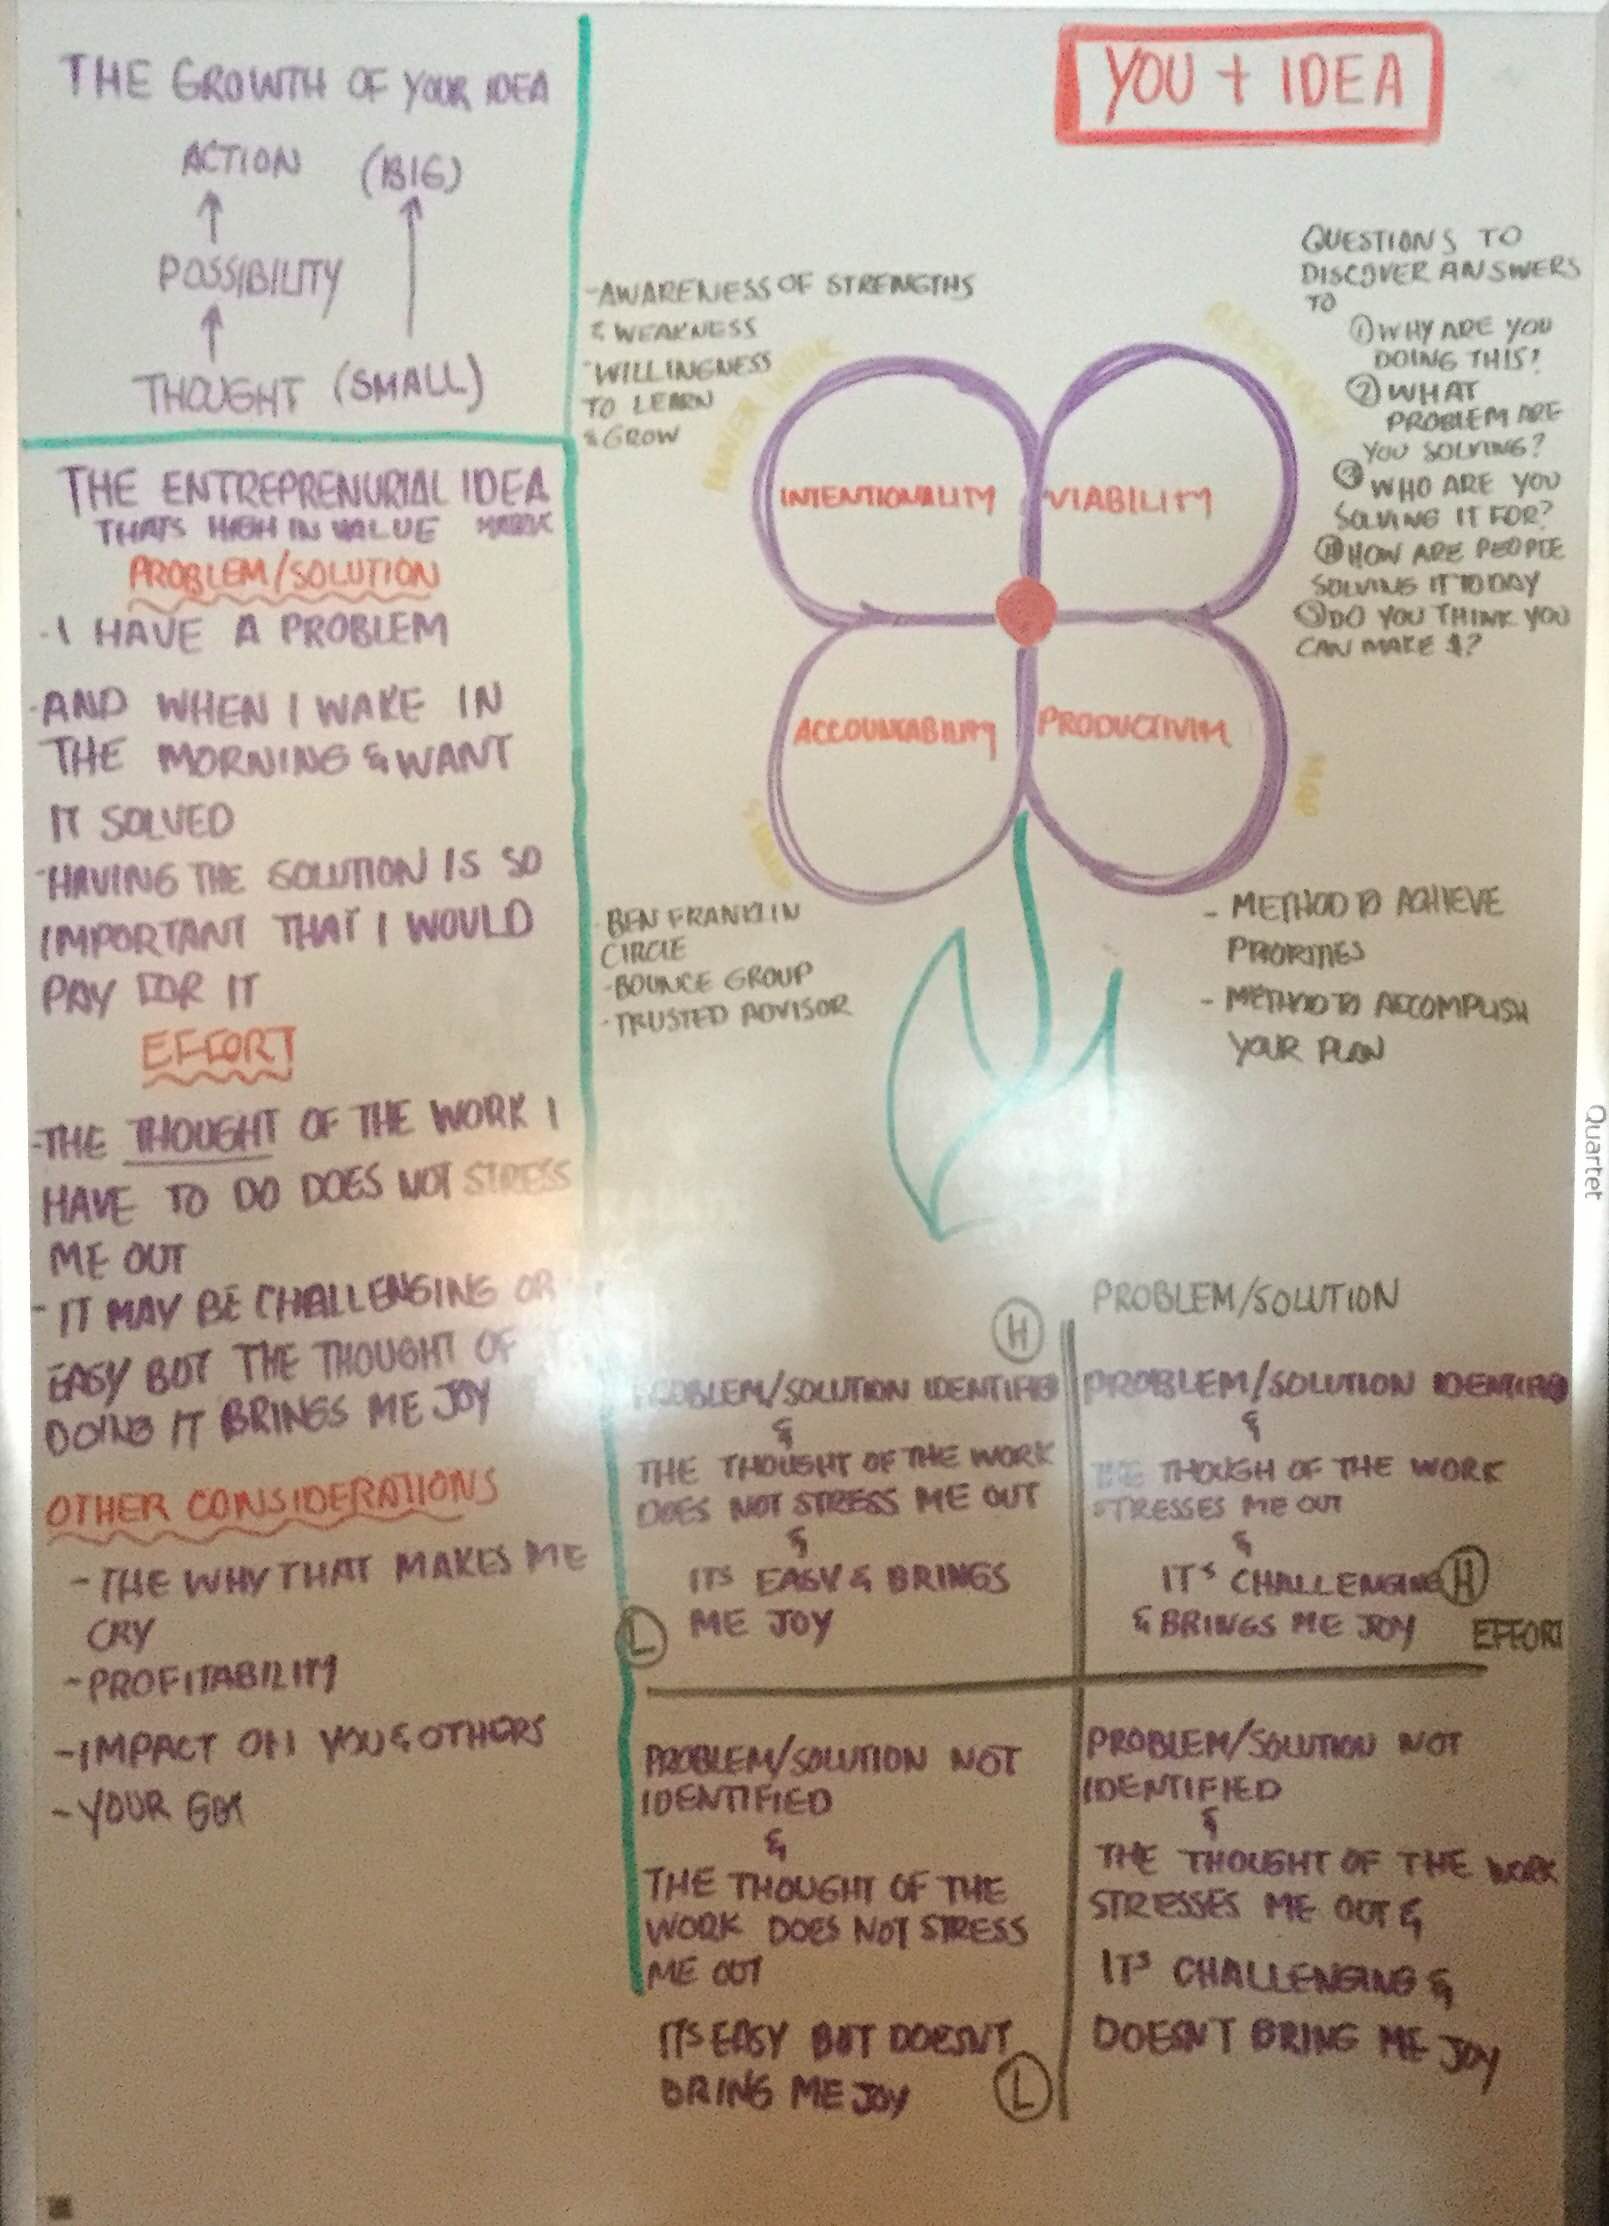 THE GROWTH OF YOUR IDEA
ACTION (BIG)
POSSIBILITY
THOUGHT (SMALL)
THE ENTREPRENURIAL IDEA
THATS HIGH IN VALUE
PROBLEM/SOLUTION
- I HAVE A PROBLEM
- AND WHEN I WAKE IN
THE MORNING & WANT
IT SOLVED
- HAVING THE SOLUTION IS SO
IMPORTANT THAT I WOULD
PAY FOR IT
EFFORT
- THE THOUGHT OF THE WORK I
HAVE TO DO DOES NOT STRESS
ME OUT
- IT MAY BE CHALLENGING OR
EASY BUT THE THOUGHT OF
DOING IT BRINGS ME JOY
OTHER CONSIDERATIONS
- THE WHY THAT MAKES ME
CRY
- PROFITABILITY
- IMPACT ON YOU & OTHERS
- YOUR GUT
YOU + IDEA
- AWARENESS OF STRENGTHS
& WEAKNESS
- WILLINGNESS
TO LEARN
& GROW
INNER WORK
RESEARCH
QUESTIONS TO
DISCOVER ANSWERS
TO
① WHY ARE YOU
DOING THIS?
② WHAT
PROBLEM ARE
YOU SOLVING?
③ WHO ARE YOU
SOLVING IT FOR?
④ HOW ARE PEOPLE
SOLVING IT TODAY
⑤ DO YOU THINK YOU
CAN MAKE $?
INTENTIONALITY
VIABILITY
ACCOUNTABILITY
PRODUCTIVITY
- BEN FRANKLIN
CIRCLE
- BOUNCE GROUP
- TRUSTED ADVISOR
- METHOD TO ACHIEVE
PRIORITIES
- METHOD TO ACCOMPLISH
YOUR PLAN
Quartet
PROBLEM/SOLUTION
H
PROBLEM/SOLUTION IDENTIFIED
&
THE THOUGHT OF THE WORK
DOES NOT STRESS ME OUT
&
ITS EASY & BRINGS
ME JOY
L
PROBLEM/SOLUTION IDENTIFIED
&
THE THOUGH OF THE WORK
STRESSES ME OUT
&
IT'S CHALLENGING
& BRINGS ME JOY
H
EFFORT
PROBLEM/SOLUTION NOT
IDENTIFIED
&
THE THOUGHT OF THE
WORK DOES NOT STRESS
ME OUT
ITS EASY BUT DOESN'T
BRING ME JOY
L
PROBLEM/SOLUTION NOT
IDENTIFIED
&
THE THOUGHT OF THE WORK
STRESSES ME OUT &
IT'S CHALLENGING &
DOESN'T BRING ME JOY